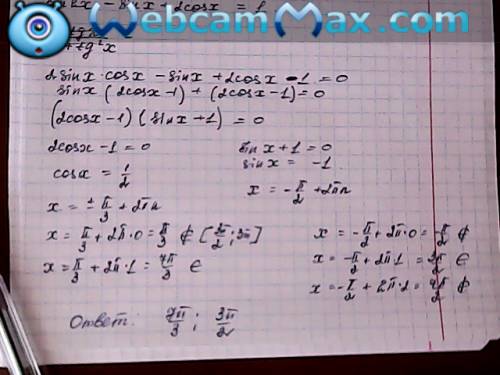 WebcamMax.com
- sinx + 2cosx = 1
2sinx·cosx - sinx + 2cosx - 1 = 0
sinx (2cosx - 1) + (2cosx - 1) = 0
(2cosx - 1) (sinx + 1) = 0
2cosx - 1 = 0
cosx = 1/2
x = ± π/3 + 2πn
x = π/3 + 2π·0 = π/3 ∉ [3π/2; 3π]
x = π/3 + 2π·1 = 7π/3 ∈
sinx + 1 = 0
sinx = -1
x = -π/2 + 2πn
x = -π/2 + 2π·0 = -π/2 ∉
x = -π/2 + 2π·1 = 3π/2 ∈
x = -π/2 + 2π·2 = 7π/2 ∉
Ответ: 7π/3 ; 3π/2